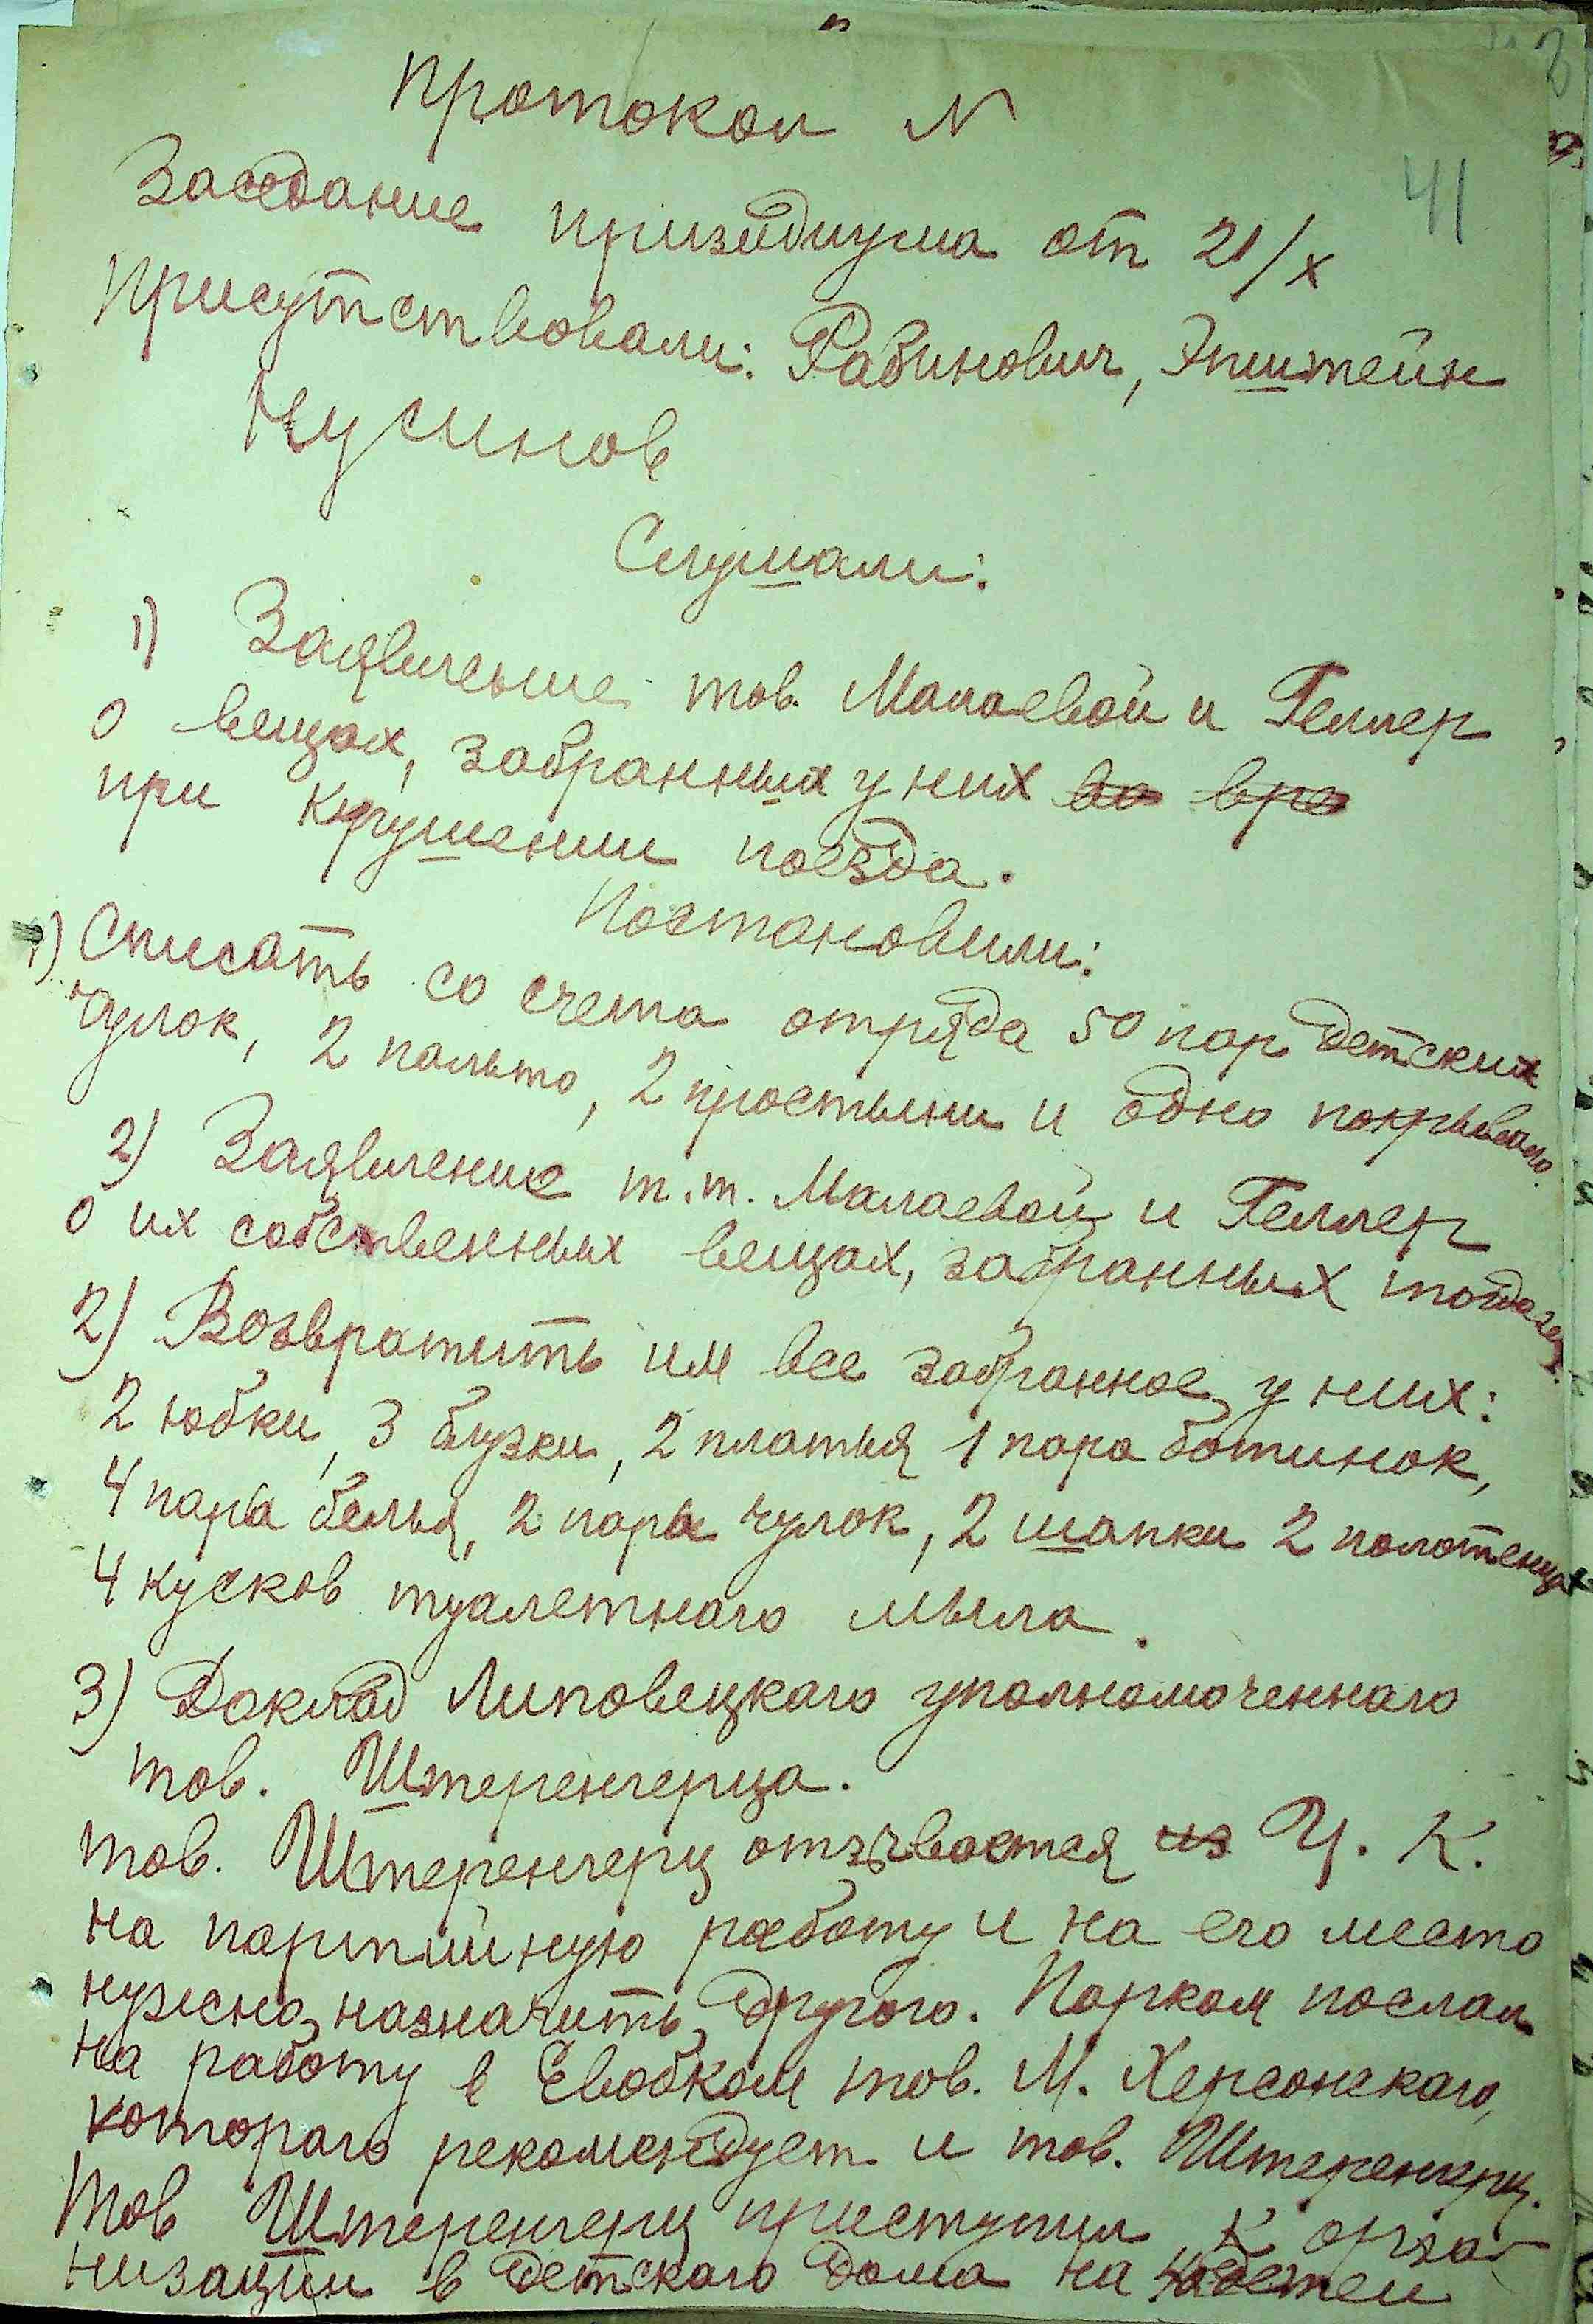 Протокол N
41
Заседание призидиума от 21/X
Присутствовали: Рабинович, Эпштейн
Нусинов
Слушали:
1) Заявление тов. Малаевой и Геллер
о вещах, забранных у них во вре
при крушении поезда.
Постановили:
1) Списать со счета отряда 50 пар детских
чулок, 2 пальто, 2 простыни и одно покрывало.
2) Заявление т.т. Малаевой и Геллер
о их собственных вещах, забранных
2) Возвратить им все забранное у них:
2 юбки, 3 блузки, 2 платья 1 пара ботинок,
4 пары белья, 2 пары чулок, 2 шапки 2 полотенца
4 кусков туалетнаго мыла.
3) Доклад Липовецкаго уполномоченнаго
тов. Штеренгерца.
тов. Штеренгерц отзывается из Ц. К.
на партийную работу и на его место
нужно назначить другого. Парком послал
на работу в Евобком тов. М. Херсонскаго,
котораго рекомендует и тов. Штеренгерц.
Тов Штеренгерц приступил к орга-
низации в детскаго дома на детей